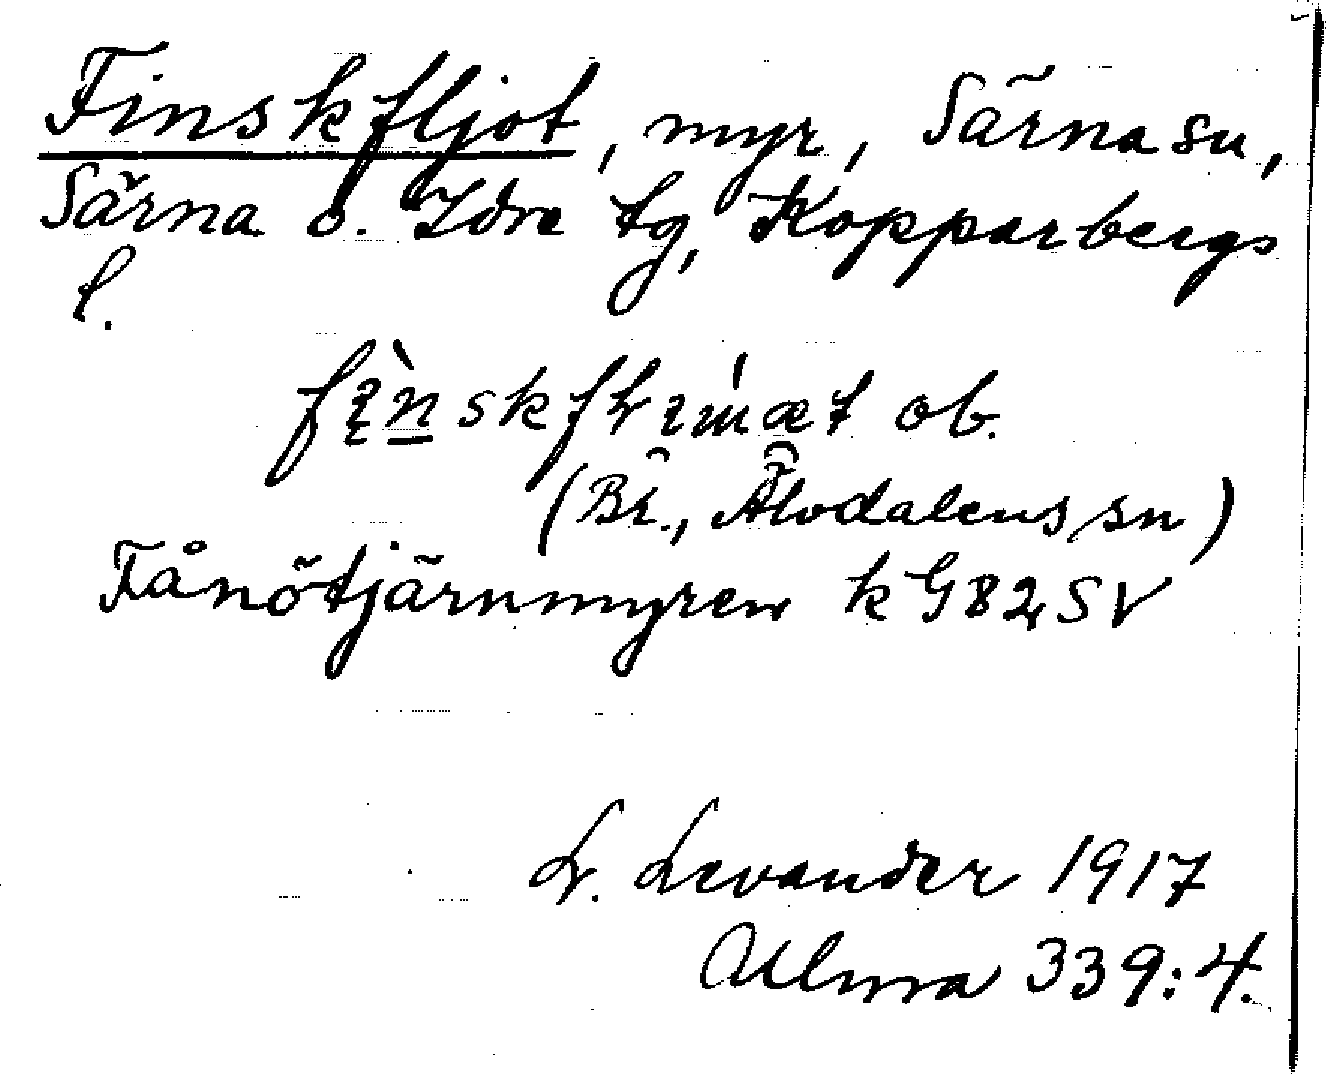 Finskfljot, myr, Särna sn,
Särna o. Idre tg, Kopparbergs
l.
ob.
(Br., Älvdalens sn)
Fånötjärnmyren k G82SV
L. Levander 1917
Ulma 339:4.